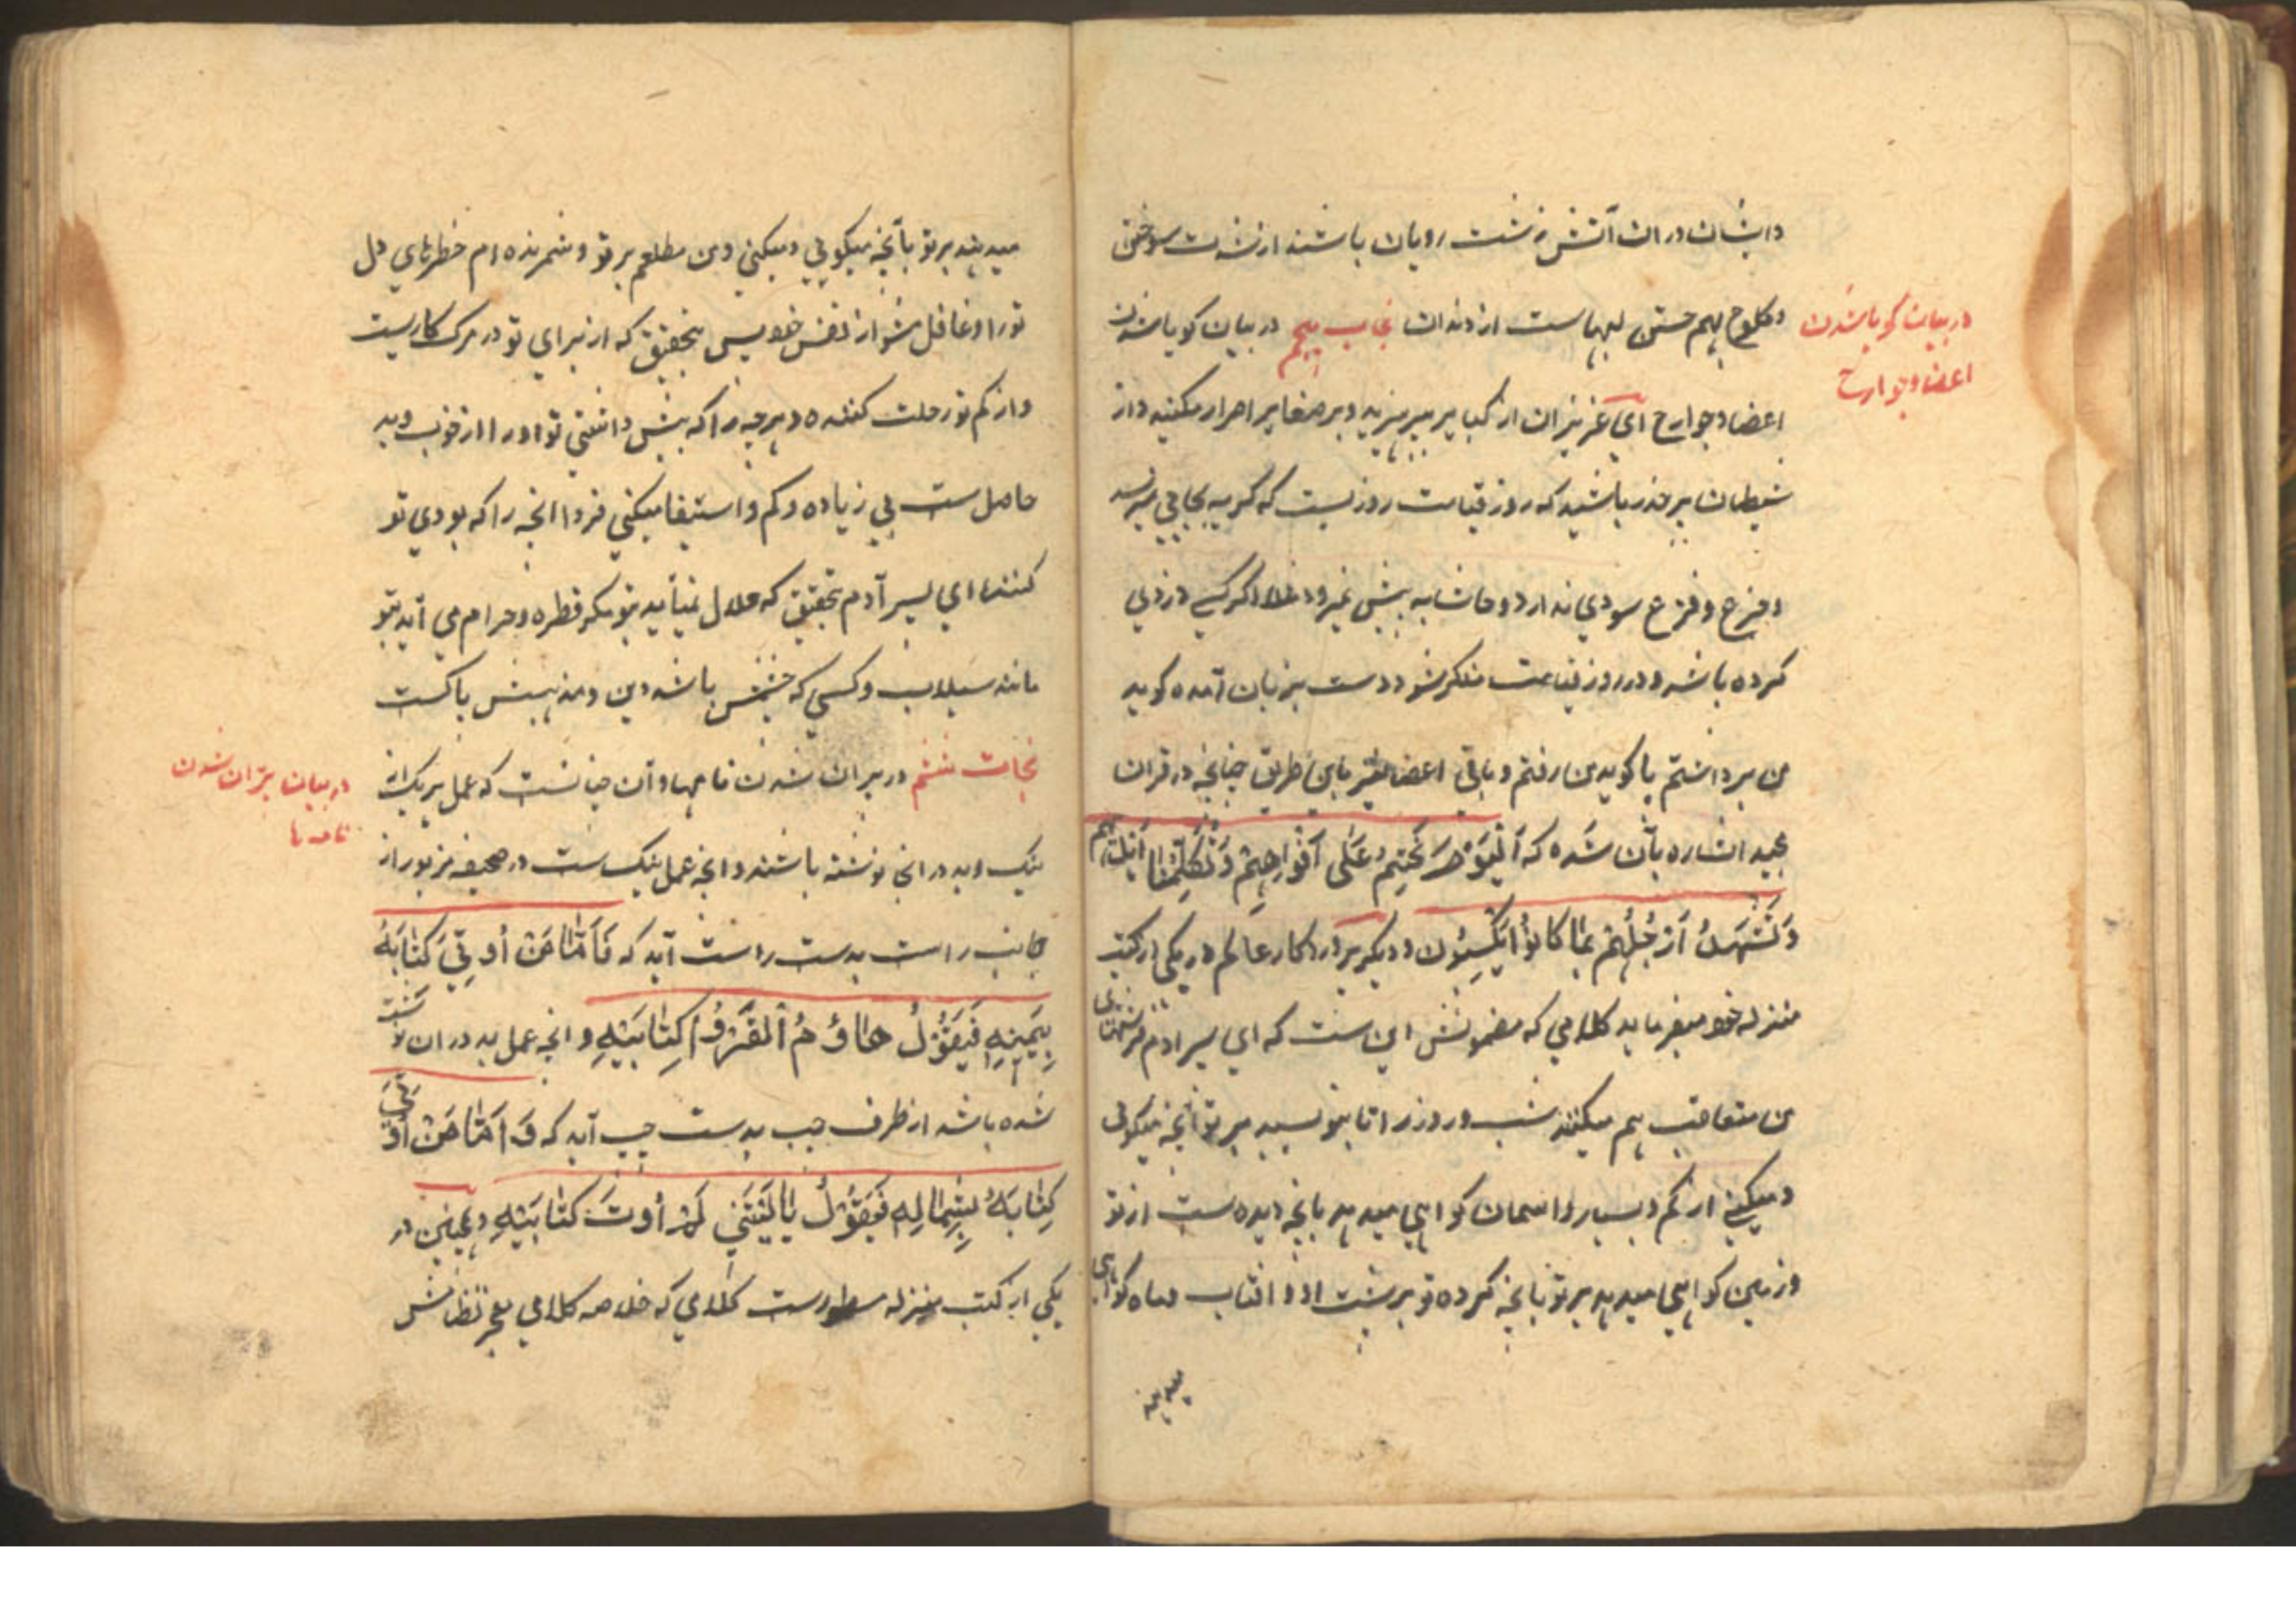 وایشان دران آتش زشت رویان باشند از شدت سوختن
وکلوح بهم جستن لبهاست از دندان نجات پنجم در بیان کویا شدن
در بیان کویا شدن
اعضا وجوارح
اعضا وجوارح ای عزیزان از کبایر بپرهیزید وبر صغایر اصرار مکنید واز
شیطان بر حذر باشید که روز قیامت روزیست که کریه بجایی نمیرسد
وجزع وفزع سودی ندارد وحاشا به پیش نمیرود مثلا اگر کسی دزدی
کرده باشد ودر روز قیامت منکر شود دست بزبان آمده کوید
من برداشتم پا کوید من رفتم وباقی اعضا نیز باین طریق چنانچه در قران
مجید اشاره بآن شده که اَلْیَوْمَ نَخْتِمُ عَلٰی اَفْوَاهِهِمْ وَتُکَلِّمُنَا اَیْدِیهِم
وَتَشْهَدُ اَرْجُلُهُمْ بِمَا کَانُوْا یَکْسِبُوْن ودیکر پروردکار عالم در یکی از کتب
منزله خود میفرماید کلامی که مضمونش این است که ای پسر ادم فرشتهای
من متعاقب هم میکنند شب وروز را تا بنویسید بر تو آنچه میکویی
ومیکنی از کم وبسیار واسمان کواهی میدهد بانچه دیده است از تو
وزمین کواهی میدهد بر تو بانچه کرده تو بر پشت او وافتاب وماه کواهی
میدهند
میدهند بر تو بآنچه میکویی ومیکنی ومن مطلعم بر تو وشمرنده ام خطرهای دل
تورا وغافل مشو از نفس خویس بتحقیق که از برای تو در مرک کاریست
واز کم تو رحلت کننده وهرچه را که پیش داشتی تو اورا از خوب وبد
حاصل است بی زیاده وکم واستیفا میکنی فردا انچه را که بودی تو
کننده ای پسر آدم بتحقیق که حلال نمیآید بتو مکر قطره وحرام می آید بتو
مانند سیلاب وکسی که باشد دین ومذهبش پاکست
نجات ششم در پران شدن نامها وآن چنانست که عمل هر یک از
در بیان پران شدن
نامها
نیک وبد در انجا نوشته باشند وانچه عمل نیک ست در صحیفه مزبور از
جانب راست بدست راست آید که فَاَمَّا مَنْ اُوتِیَ کِتَابَهُ
بِیَمِیْنِهِ فَیَقُوْلُ هَاؤُمُ اقْرَؤُا کِتَابِیَهْ وانچه عمل بد دران نوشته
شده باشد از طرف چپ بدست چپ آید که وَاَمَّا مَنْ اُوتِیَ
کِتَابَهُ بِشِمَالِهِ فَیَقُوْلُ یَا لَیْتَنِی لَمْ اُوتَ کِتَابِیَهْ وهمچنین در
یکی از کتب منزله سطورست کلامی که خلاصه کلامی معجز نظامش